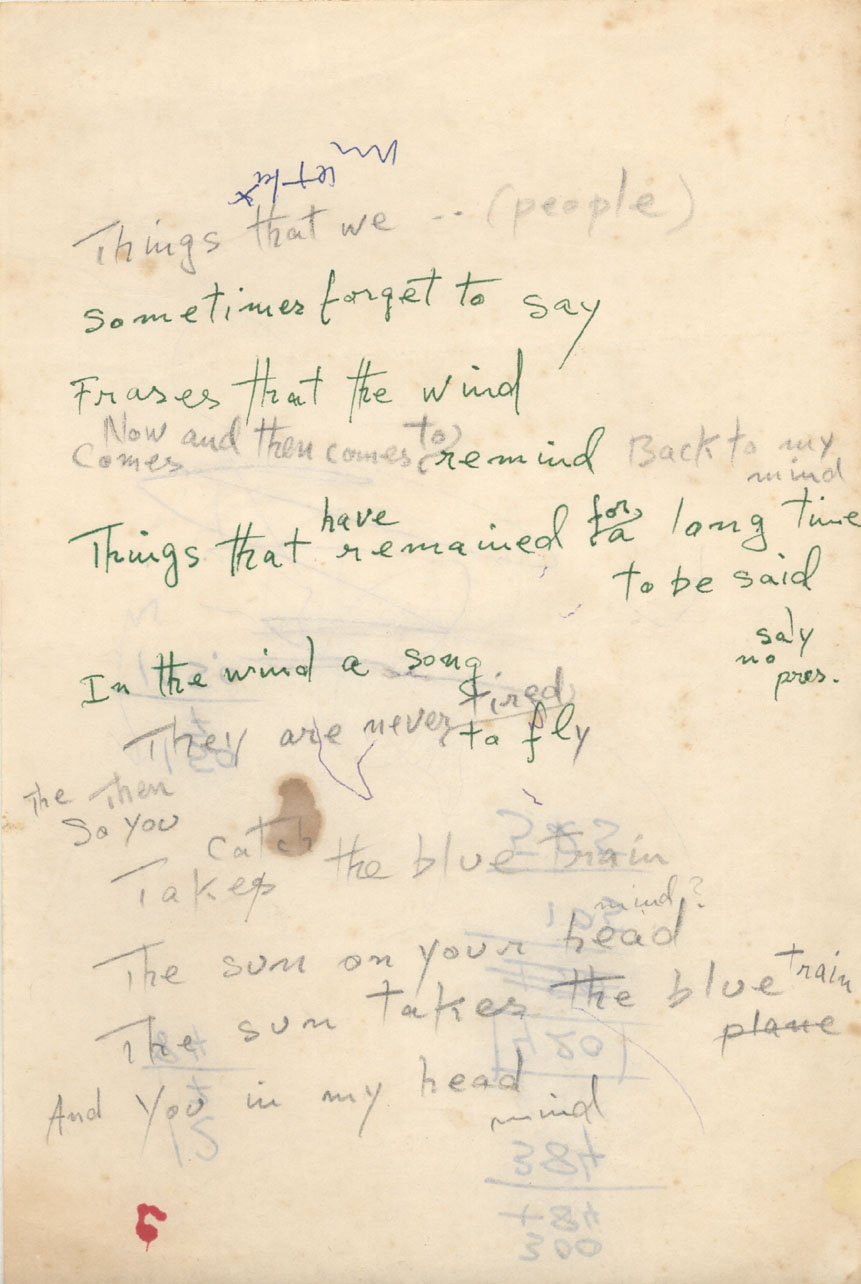 Things that we .. (people)
sometimes forget to say
Frases that the wind
Now and then comes to
Comes remind Back to my
mind
Things that have remained for a long time
to be said
say
no
pres.
In the wind a song
tired
They are never to fly
The Then
So you
catch
Takes the blue train
mind?
The sun on your head
The sun takes the blue train
plane
And you in my head
mind